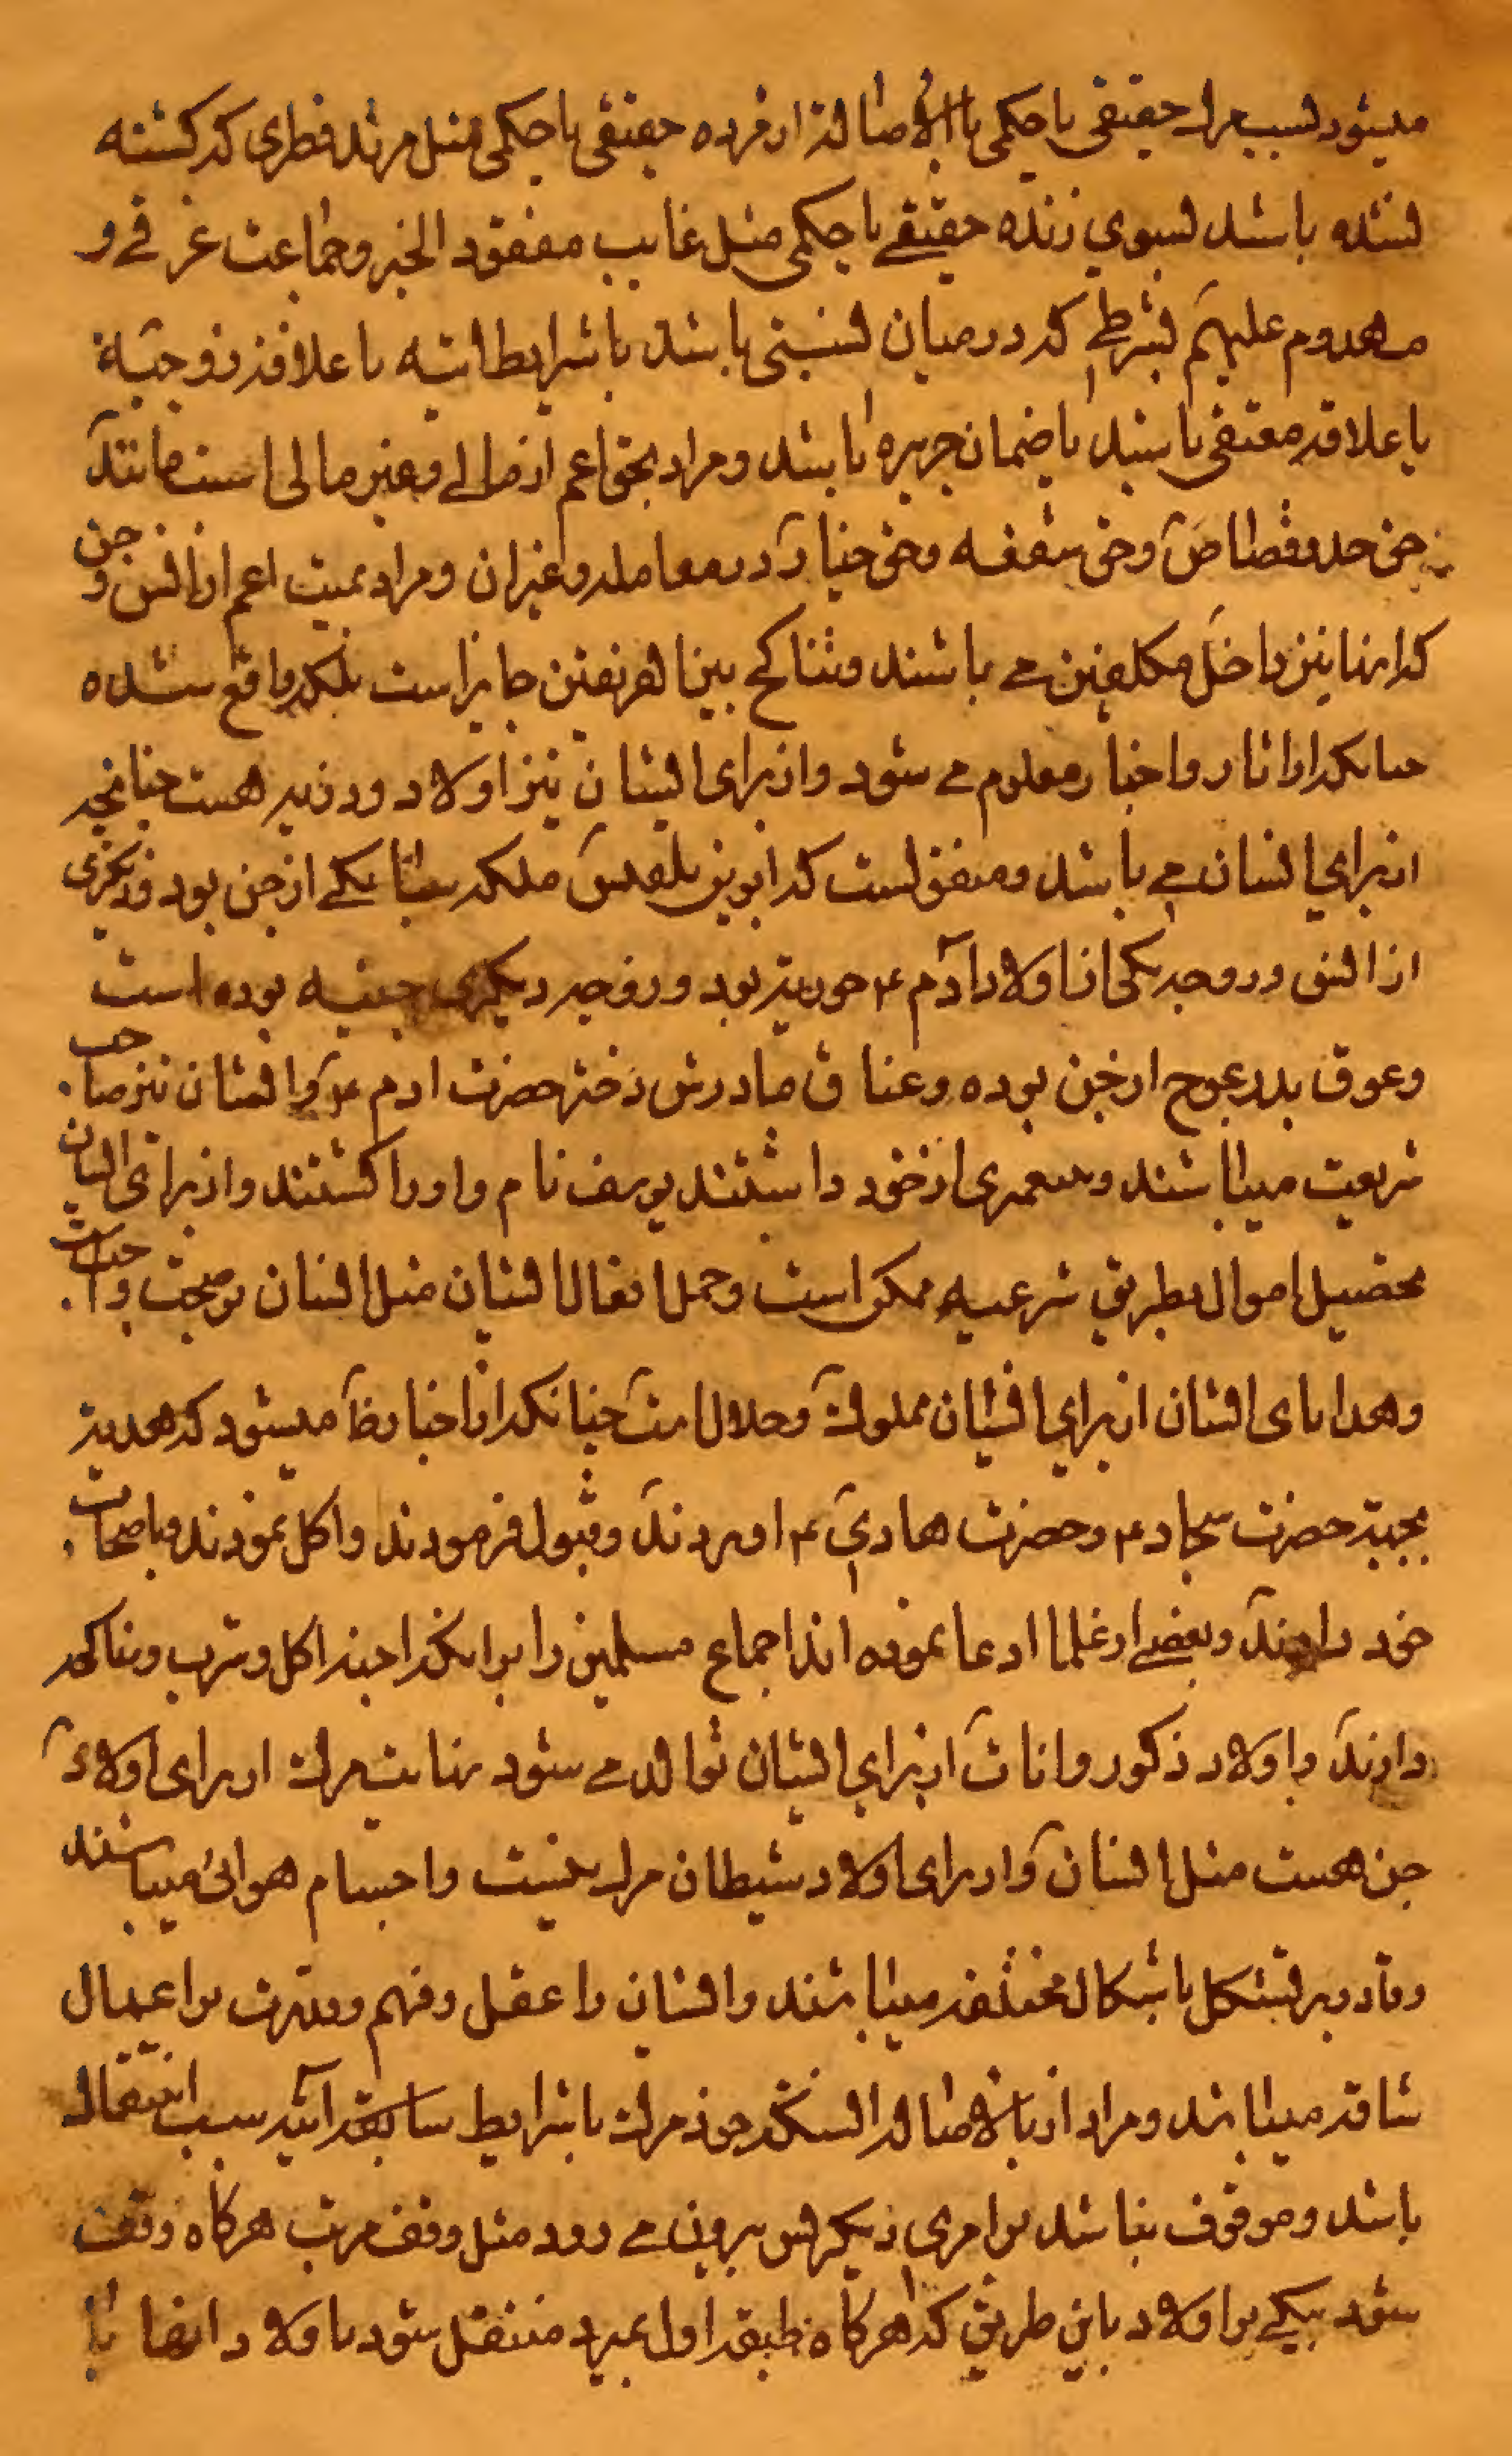 میشود بسبب مرك حقیقی یا حکمی با الاصالة از مرده حقیقی یا حکمی مثل مرتد فطری که کشته
نشده باشد بسوی زنده حقیقے یا حکمی مثل غایب مفقود الخبر و جماعت غرقے و
مهدوم علیهم بشرطے که در میان نسبتی باشد با شرایط اتیه یا علاقه زوجیة
یا علاقه معتقی باشد یا ضمان جریره باشد و مراد بحق اعم از مالے و غیر مالی است مانند
حق حد و قصاص و حق شفعه و حق خیار در معامله و غیر ان و مراد بمیت اعم از انس و جن
که اینها نیز داخل مکلفین مے باشند و تناکح بین الفریقین جایز است بلکه واقع شده
چنانکه از اثار و اخبار معلوم مے شود و از برای ایشان نیز اولاد و ذریه هست چنانچه
از برای انسان مے باشد و متفق است که ابوین بلقیس ملکه سبا یکے از جن بود و دیکری
از انس و زوجه یکی از اولاد ادم ء حوریة بود و زوجه دیکری جنیه بوده است
و عوق پدر عوج از جن بوده و عناق مادرش دختر حضرت ادم ء و ایشان نیز صاحب
شریعت میباشند و پیغمبری از خود داشتند یوسف نام و او را کشتند و از برای ایشان
تحصیل اموال بطریق شرعیه ممکن است و حمل افعال ایشان مثل انسان بر صحت واجب است
و هدایای ایشان از برای انسان مملوك و حلال است چنانکه از اخبار ظاهر میشود که هدیة
بجهة حضرت سجاد ء و حضرت هادی ء اوردند و قبول فرمودند و اکل نمودند و باصحاب
خود دادند و بعضے از علما ادعا نموده اند اجماع مسلمین را بر اینکه اجنه اکل و شرب و مناکحه
دارند و اولاد ذکور و اناث از برای ایشان توالد مے شود نهایت مرك از برای اولاد
جن هست مثل انسان و از برای اولاد شیطان مرك نیست و اجسام هوائی میباشند
و قادر بر تشکل باشکال مختلفه میباشند و ایشان را عقل و فهم و قدرت بر اعمال
شاقه میباشد و مراد از بالاصالة انستکه خود مرك با شرایط سابقه اتیه سبب انتقال
باشد و موقوف نباشد بر امری دیکر پس بیرون مے رود مثل وقف مرتب هرکاه وقف
شود ملکے بر اولاد باین طریق که هرکاه طبقه اول بمیرد منتقل شود باولاد انها با